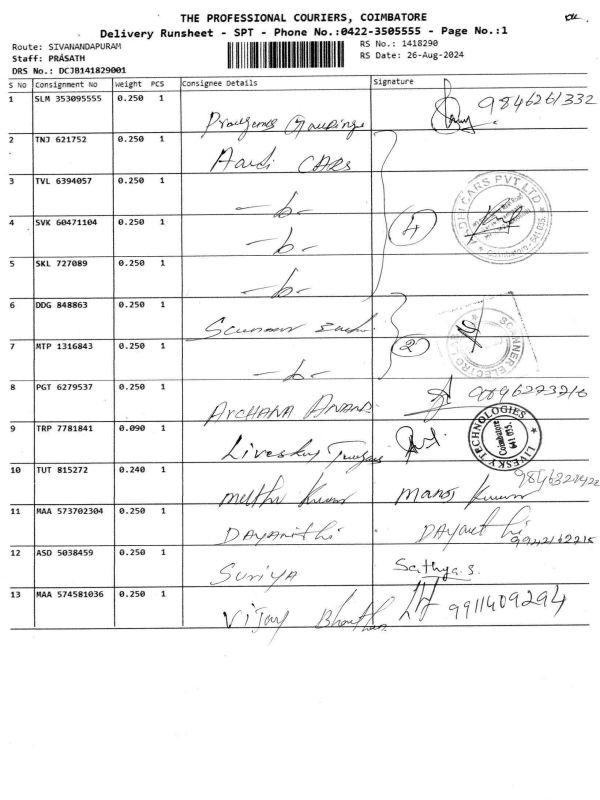 THE PROFESSIONAL COURIERS, COIMBATORE
Delivery Runsheet - SPT - Phone No.:0422-3505555 - Page No.:1
Route: SIVANANDAPURAM
RS No.: 1418290
Staff: PRASATH
RS Date: 26-Aug-2024
DRS No.: DCJB141829001
S No Consignment No Weight PCS Consignee Details Signature
1 SLM 353095555 0.250 1 9846261332
2 TNJ 621752 0.250 1 CARS
3 TVL 6394057 0.250 1
4 SVK 60471104 0.250 1 4
CARS PVT LTD
Coimbatore - 641 035.
5 SKL 727089 0.250 1
6 DDG 848863 0.250 1
7 MTP 1316843 0.250 1 2
8 PGT 6279537 0.250 1 ARCHANA ANAND
9 TRP 7781841 0.090 1 Livesky
LIVESKY TECHNOLOGIES
Coimbatore
641 035.
10 TUT 815272 0.240 1 Kumar Manoj Kumar
11 MAA 573702304 0.250 1 DAYANITHI
12 ASD 5038459 0.250 1 SURIYA Sathya.S.
13 MAA 574581036 0.250 1 VIJAY 9911409294